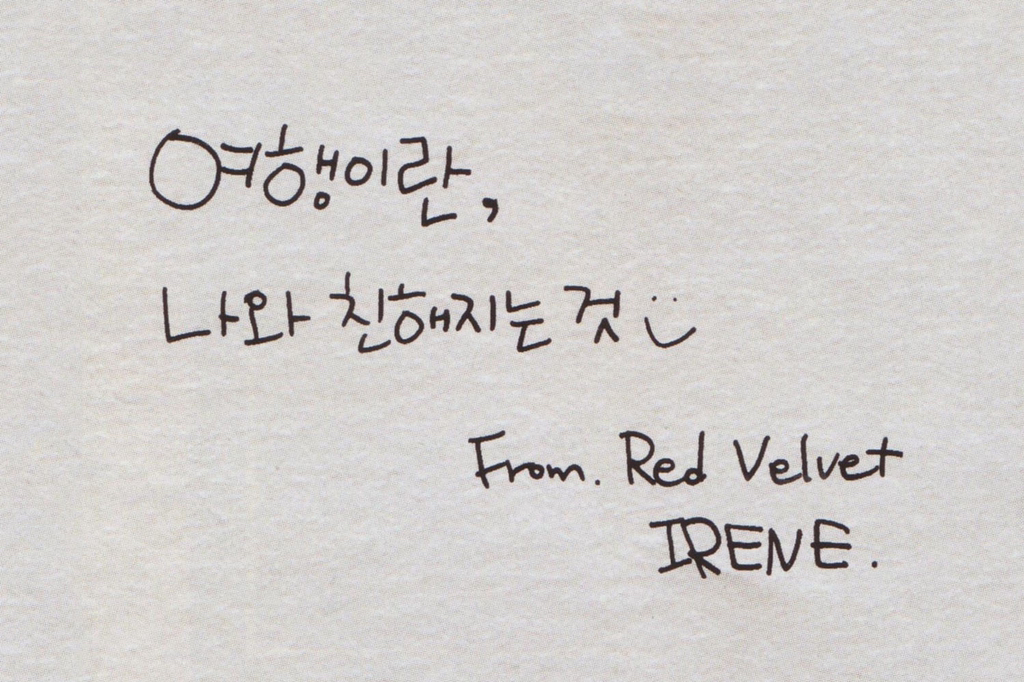 여행이란,
나와 친해지는 것 :)
From. Red Velvet
IRENE.